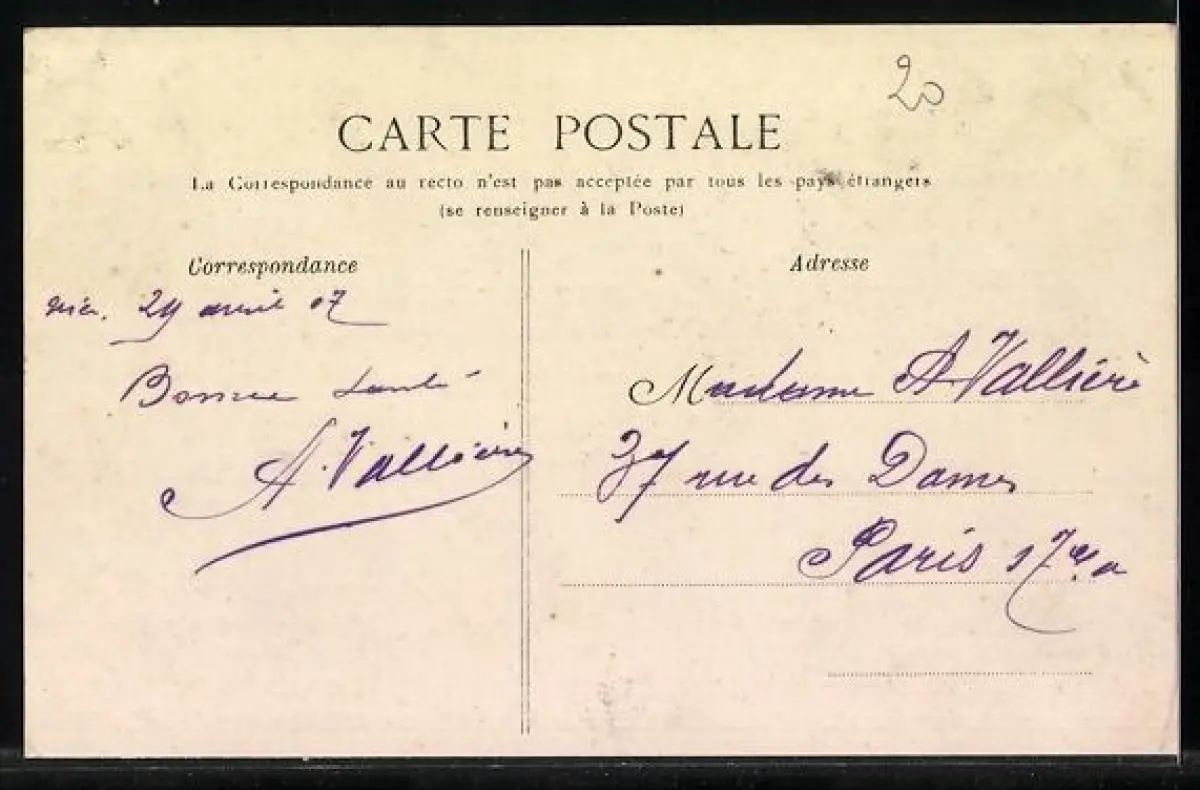 20
CARTE POSTALE
La Correspondance au recto n'est pas acceptée par tous les pays étrangers
(se renseigner à la Poste)
Correspondance
avril 07
Bonne Santé
A. Vallière
Adresse
Madame A Vallière
37 rue des Dames
Paris 17